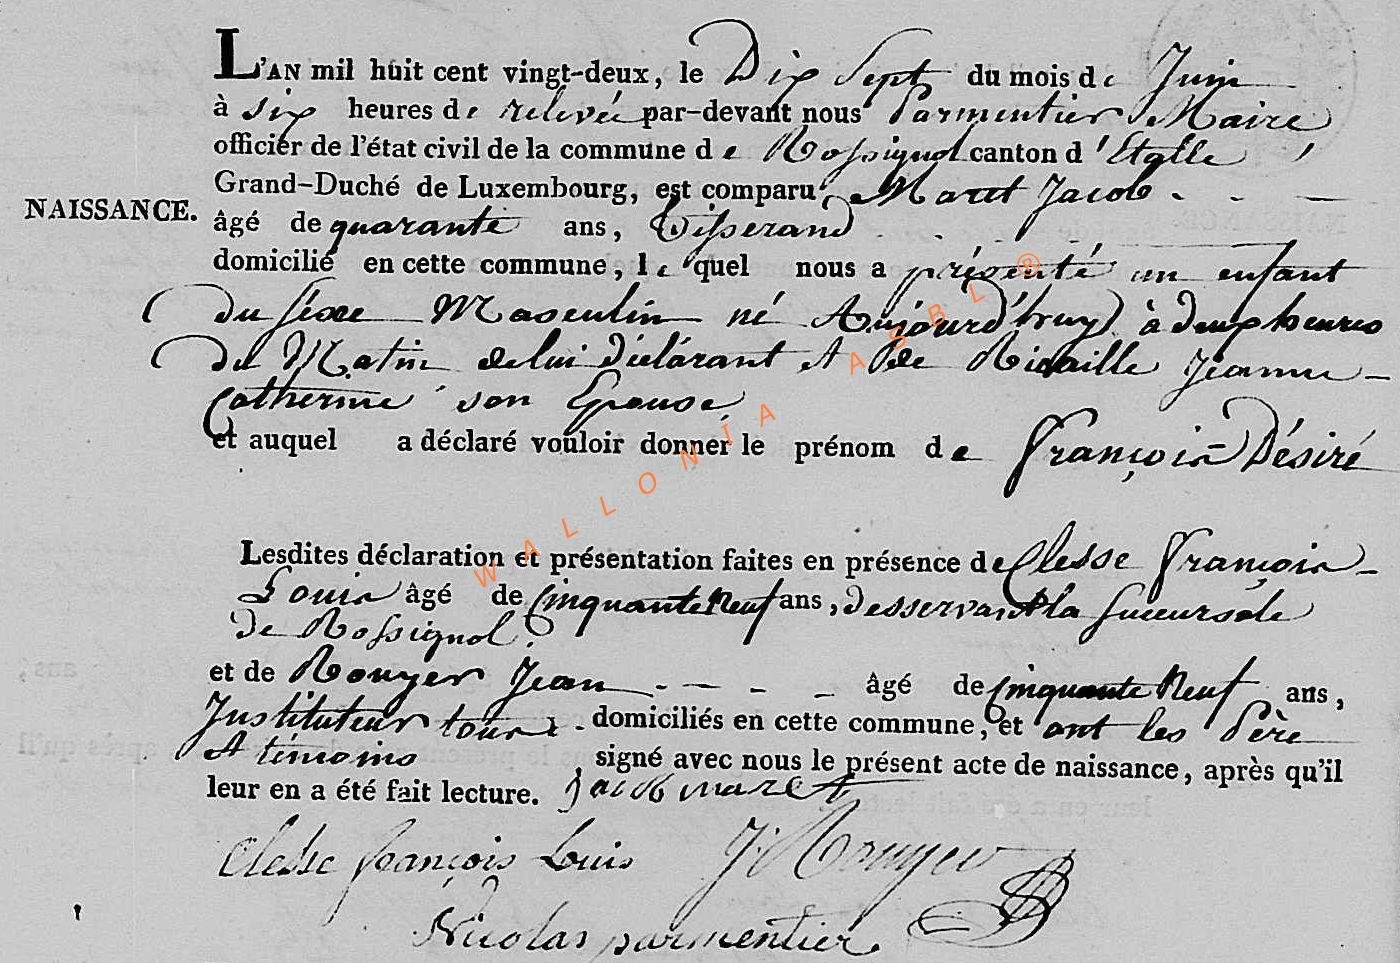 L'AN mil huit cent vingt-deux, le Dix Sept du mois de Juin
à six heures de relevée par-devant nous Parmentier Maire
officier de l'état civil de la commune de Rossignol canton d'Etalle,
Grand-Duché de Luxembourg, est comparu Maret Jacob - - -
NAISSANCE.
âgé de quarante ans, Tisserand
domicilié en cette commune, lequel nous a présenté un enfant
du sexe Masculin né Aujourd'huy à deux heures
du Matin de lui déclarant et de Ricaille Jeanne -
Catherine son Epouse
et auquel a déclaré vouloir donner le prénom de François Désiré
Lesdites déclaration et présentation faites en présence de Clesse François -
Louis âgé de Cinquante Neuf ans, desservant la succursale
de Rossignol
et de Rouyer Jean - - - - âgé de Cinquante Neuf ans,
Instituteur tous domiciliés en cette commune, et ont les Père
et témoins signé avec nous le présent acte de naissance, après qu'il
leur en a été fait lecture. Jacob maret
Clesse françois Louis J Rouyer
Nicolas parmentier
WALLONIA ASBL ®